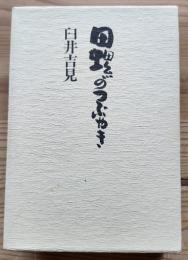 田螺のつぶやき
臼井吉見